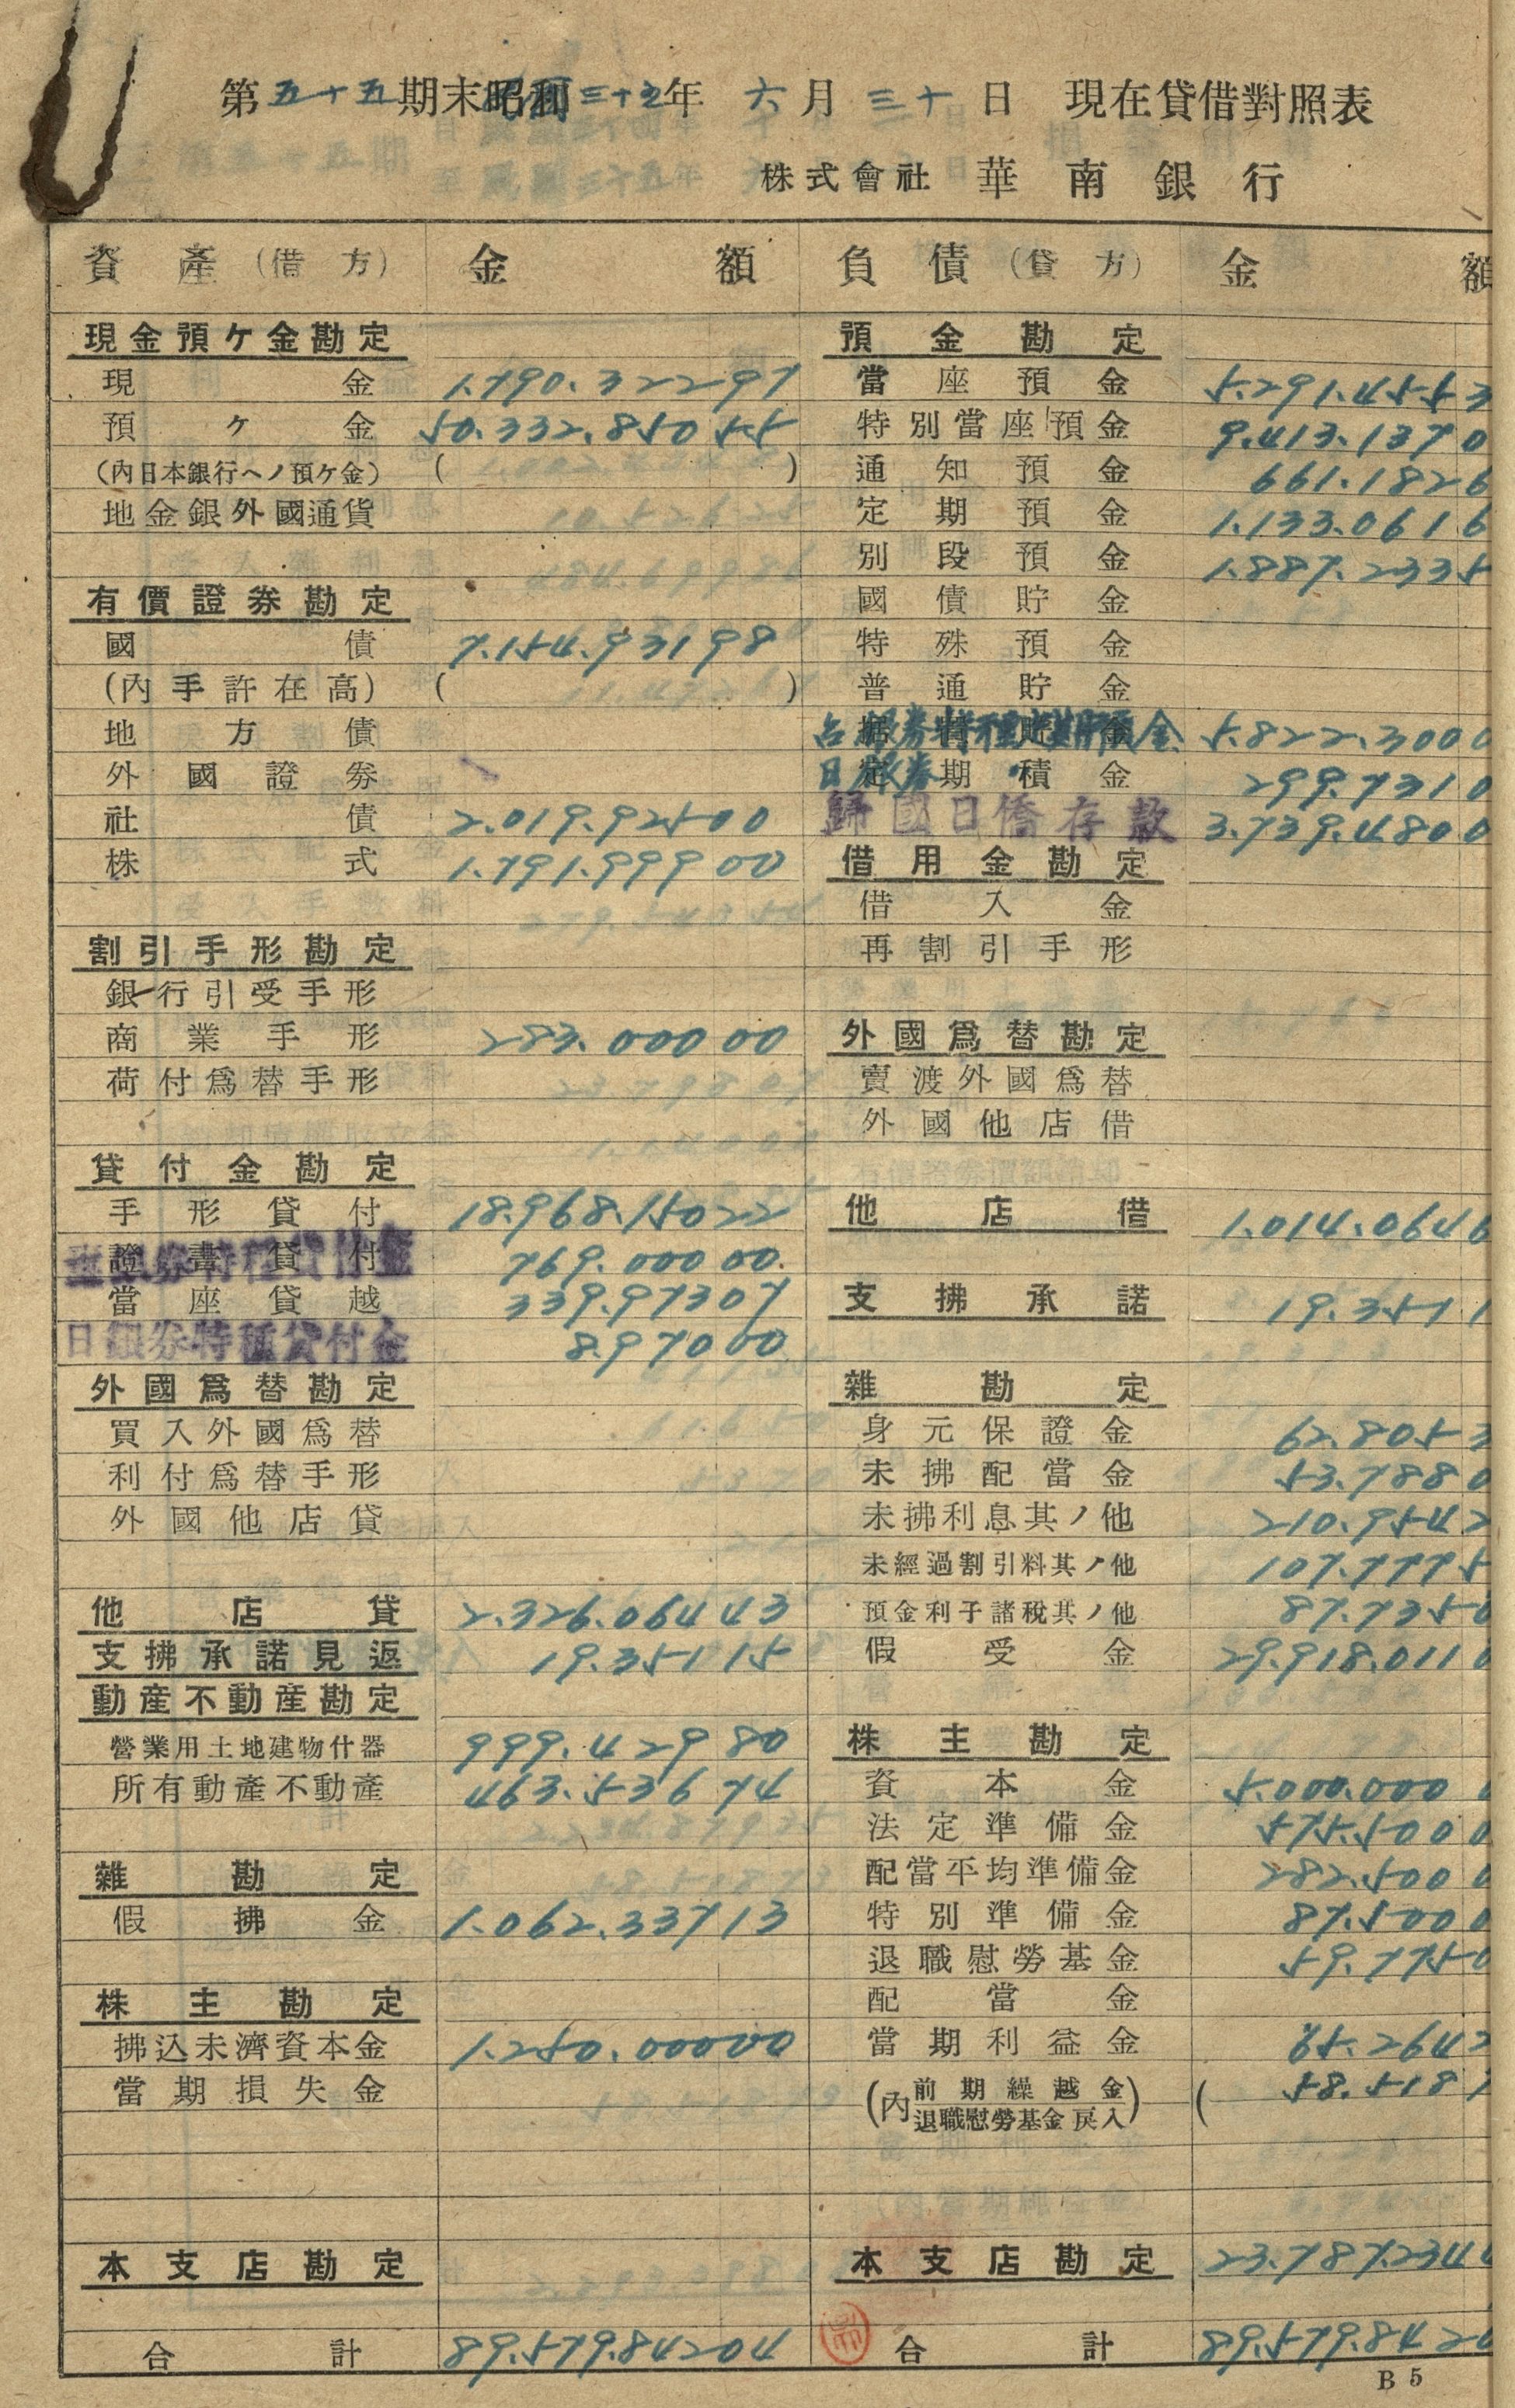 第五十五期末民國三十五年六月三十日 現在貸借對照表
株式會社 華南銀行
資產(借方) 金額 負債(貸方) 金額
現金預ケ金勘定 預金勘定
現金 1.790.322 97 當座預金 5.291.455 3
預ケ金 50.332.850 55 特別當座預金 9.413.137 0
(內日本銀行ヘノ預ケ金) ( ) 通知預金 661.182 6
地金銀外國通貨 定期預金 1.133.061 6
別段預金 1.887.233 5
有價證券勘定 國債貯金
國債 7.154.931 98 特殊預金
(內手許在高) ( ) 普通貯金
地方債 台銀券特種定期預金 5.822.300 0
外國證券 日銀券 〃 299.731 0
社債 2.019.925 00 歸國日僑存款 3.739.480 0
株式 1.791.999 00 借用金勘定
借入金
割引手形勘定 再割引手形
銀行引受手形
商業手形 283.000 00 外國爲替勘定
荷付爲替手形 賣渡外國爲替
外國他店借
貸付金勘定
手形貸付 18.968.150 22 他店借 1.014.064 6
臺銀券特種貸付金 769.000 00
當座貸越 339.973 07 支拂承諾 19.351 1
日銀券特種貸付金 8.970 00
外國爲替勘定 雜勘定
買入外國爲替 身元保證金 62.805 3
利付爲替手形 未拂配當金 53.788 0
外國他店貸 未拂利息其ノ他 210.954 2
未經過割引料其ノ他 107.777 5
他店貸 2.326.064 43 預金利子諸稅其ノ他 87.735 0
支拂承諾見返 19.351 15 假受金 29.918.011 0
動產不動產勘定
營業用土地建物什器 999.429 80 株主勘定
所有動產不動產 463.536 74 資本金 5.000.000 0
法定準備金 575.500 0
雜勘定 配當平均準備金 282.500 0
假拂金 1.062.337 13 特別準備金 87.500 0
退職慰勞基金 59.775 0
株主勘定 配當金
拂込未濟資本金 1.250.000 00 當期利益金 65.264 2
當期損失金 (內 前期繰越金 退職慰勞基金戾入) ( 58.518 7
本支店勘定 本支店勘定 23.787.234 4
合計 89.579.842 04 合計 89.579.842 0
B 5